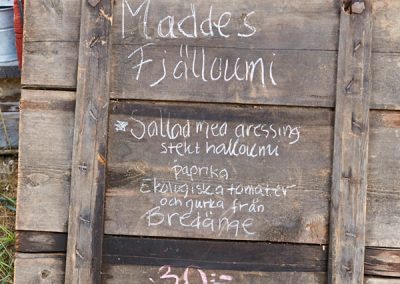 Maddes
Fjälloumi
* Sallad med dressing
stekt halloumi
paprika
Ekologiska tomater
och gurka från
Bredänge
30:-